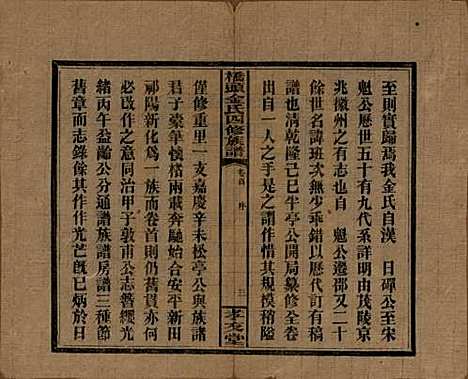 至則實歸焉我金氏自漢　日磾公至宋
魁公歷世五十有九代系詳明由茂陵京
兆徽州之有志也自　魁公遷鄂又二十
餘世名諱班次無少乖錯以歷代訂有稿
也迨清乾隆己巳半亭公開局纂修全卷
出自一人之手是之謂作惜其規模稍隘
橋頭金氏四修族譜
卷首　序
三
孝友堂
僅修重里一支嘉慶辛未松亭公與族諸
君子橐筆懷槧兩載奔馳始合安平新田
祁陽新化為一族而卷首則仍舊貫亦何
必改作之意同治甲子敦甫公志營纓光
緒丙午益齡公分通譜族譜房譜三種節
舊章而志錄餘其作作光芒既已炳於日